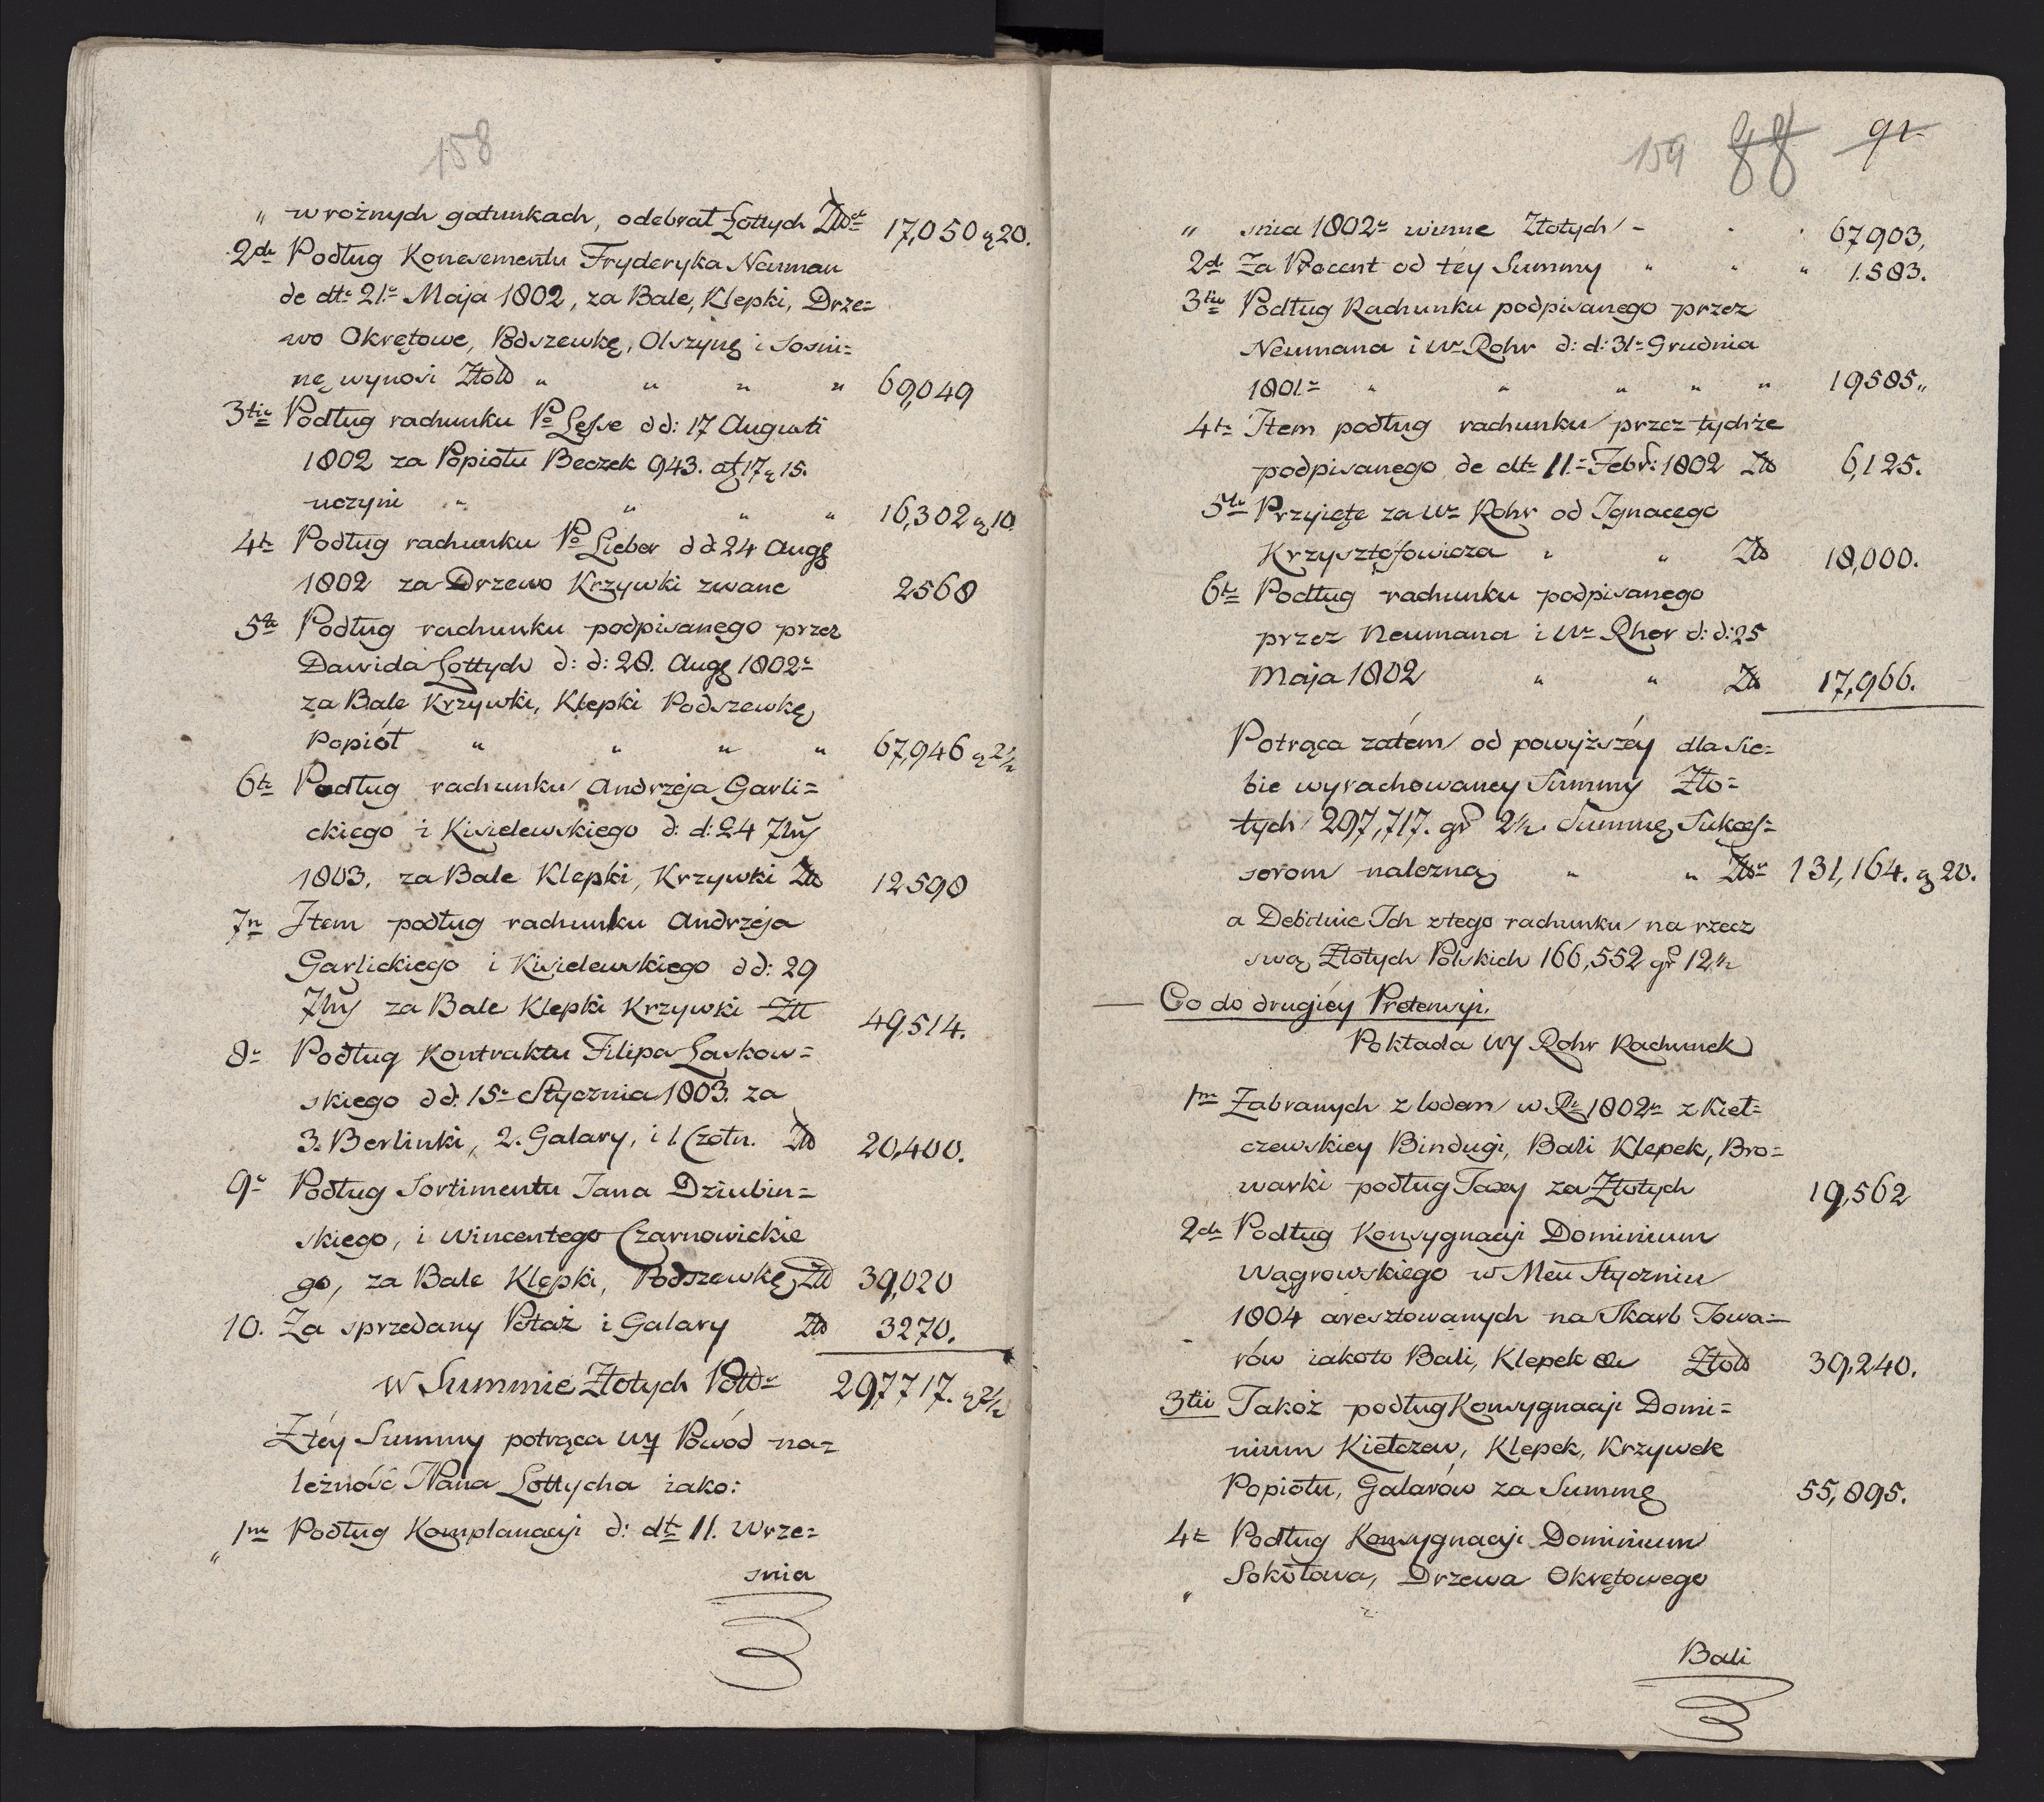 158
„ w rożnych gatunkach, odebrał Lottych Złłch 17,050 g 20.
2do Podług Konesementu Fryderyka Neuman
de dto 21o Maja 1802, za Bale, Klepki, Drze=
wo Okrętowe, Podszewkę, Olszynę i sosni=
nę wynosi Złotd „ „ „ „ 69,049
3tio Podług rachunku Po Lesse dd: 17 Augusti
1802 za Popiołu Beczek 943. a f 17 g 15.
uczyni „ „ „ „ 16,302 g 10
4to Podług rachunku Po Lieber dd 24 Augs
1802 za Drzewo Krzywki zwane 2568
5to Podług rachunku podpisanego przez
Dawida Lottych d: d: 28. Augs 1802o
za Bale Krzywki, Klepki Podszewkę
Popiół „ „ „ „ 67,946 g 2½
6to Podług rachunku Andrzeja Garli=
ckiego i Kisielewskiego d: d: 24 7bry
1803. za Bale Klepki, Krzywki Złł 12598
7o Item podług rachunku Andrzeja
Garlickiego i Kisielewskiego dd: 29
7bry za Bale Klepki Krzywki Złł 49,514.
8o Podług Kontraktu Filipa Laskow=
skiego dd: 15o Stycznia 1803. za
3. Berlinki, 2. Galary, i 1 Czółn. Złł 20,400.
9o Podług Sortimentu Jana Dziubin=
skiego, i Wincentego Czarnowickie
go, za Bale Klepki, Podszewkę Złł 39,020
10. Za sprzedany Potaż i Galary Złł 3270.
W Summie Złotych 297717. g 2½
Z téy Summy potrąca Wy Powód na=
leżność Pana Lottycha iako:
1mo Podług Komplanacyi d: dto 11. Wrze=
„ snia
159 88 91
„ snia 1802o winne Złotych - 67,903,
2do Za Procent od téy Summy „ „ „ 1.583.
3tio Podług Rachunku podpisanego przez
Neumana i Wo Rohr d: d: 31o Grudnia
1801o „ „ „ „ „ 19585„
4to Item podług rachunku przez tychże
podpisanego de dto 11o Febr: 1802 Złł 6,125.
5to Przyięte za Wo Rohr od Ignacego
Krzysztofowicza „ „ Złł 18,000.
6to Podług rachunku podpisanego
przez Neumana i Wo Rhor d: d: 25
Maja 1802 „ „ Złł 17,966.
Potrąca zatém od powyższéy dla sie=
bie wyrachowaney Summy Zło=
tych 297,717. gr 2½ Summę Sukces=
sorom należną „ „ Złł 131,164. g 20.
a Debituie Ich z tego rachunku na rzecz
swą Złotych Polskich 166,552 gr 12½
— Co do drugiéy Pretensyi.
Pokłada Wy Rohr Rachunek
1mo Zabranych z lodem w Ru 1802o z Kieł=
czewskiey Bindugi, Bali Klepek, Bro=
warki podług Taxy za Złotych 19,562
2do Podług Konsygnacyi Dominium
Wągrowskiego w Meu Styczniu
1804 aresztowanych na Skarb Towa=
rów iakoto Bali, Klepek &c Złotd 39,240.
3tio Takoż podług Konsygnacyi Domi=
nium Kiełczew, Klepek, Krzywek
Popiołu, Galarów za Summę 55,895.
4to Podług Konsygnacyi Dominium
„ Sokołowa, Drzewa Okrętowego
Bali